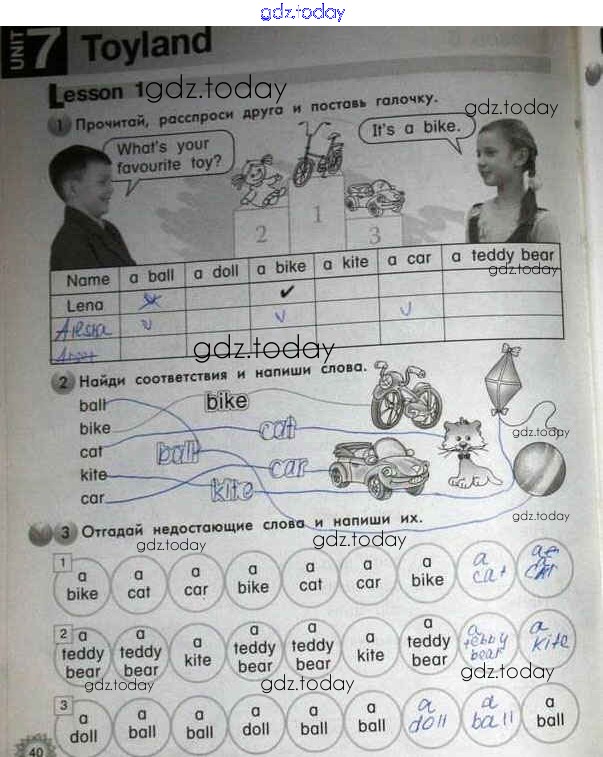 gdz.today
UNIT 7 Toyland
Lesson 1 gdz.today
1 Прочитай, расспроси друга и поставь галочку.
gdz.today
What's your
favourite toy?
It's a bike.
2 1 3
Name a ball a doll a bike a kite a car a teddy bear
gdz.today
Lena ✔
v v v
gdz.today
2 Найди соответствия и напиши слова.
ball bike
bike cat
cat ball
kite car
car kite
gdz.today
gdz.today
3 Отгадай недостающие слова и напиши их.
gdz.today gdz.today
1 a bike a cat a car a bike a cat a car a bike a cat a car
2 a teddy bear a teddy bear a kite a teddy bear a teddy bear a kite a teddy bear a teddy bear a kite
gdz.today gdz.today gdz.today
3 a doll a ball a ball a doll a ball a ball a doll a ball a ball
40